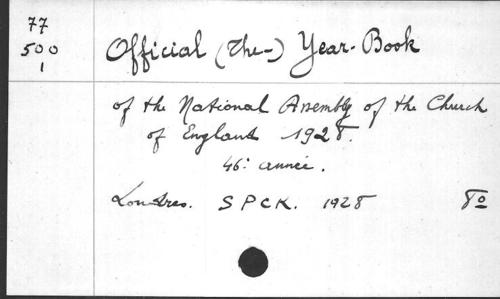 77
500
1
Official (The-) Year-Book
of the National Assembly of the Church
of England 1928.
46: année.
Londres. S P C K. 1928 8o